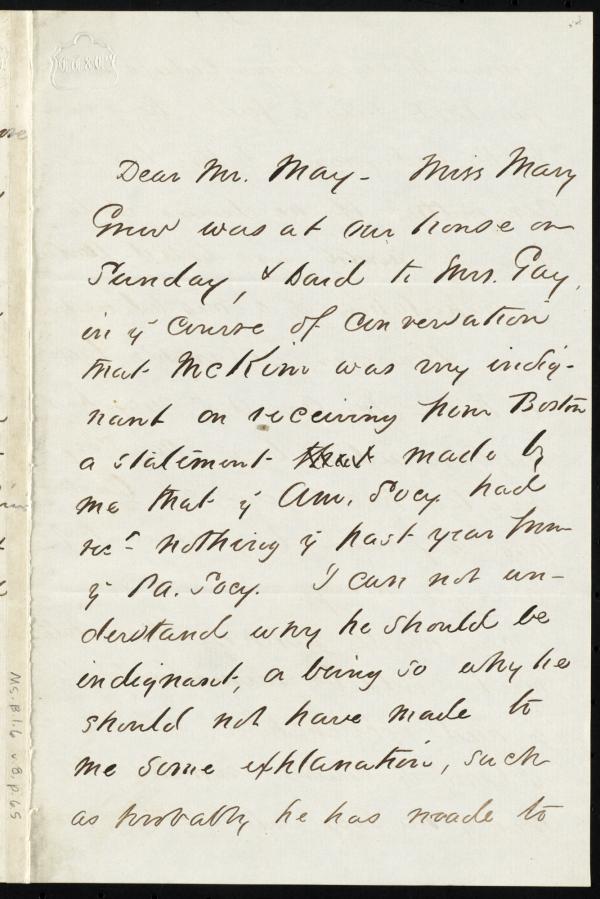 Dear Mr. May - Miss Mary
Grew was at our house on
Sunday, & said to Mrs. Gay,
in y course of conversation
that McKim was very indig-
nant on receiving from Boston
a statement that made by
me that y Am. Socy had
recd nothing y past year from
y Pa. Socy. I can not un-
derstand why he should be
indignant, or being so why he
should not have made to
me some explanation, such
as probably he has made to
Ms. B.1.6 v.8, p.65